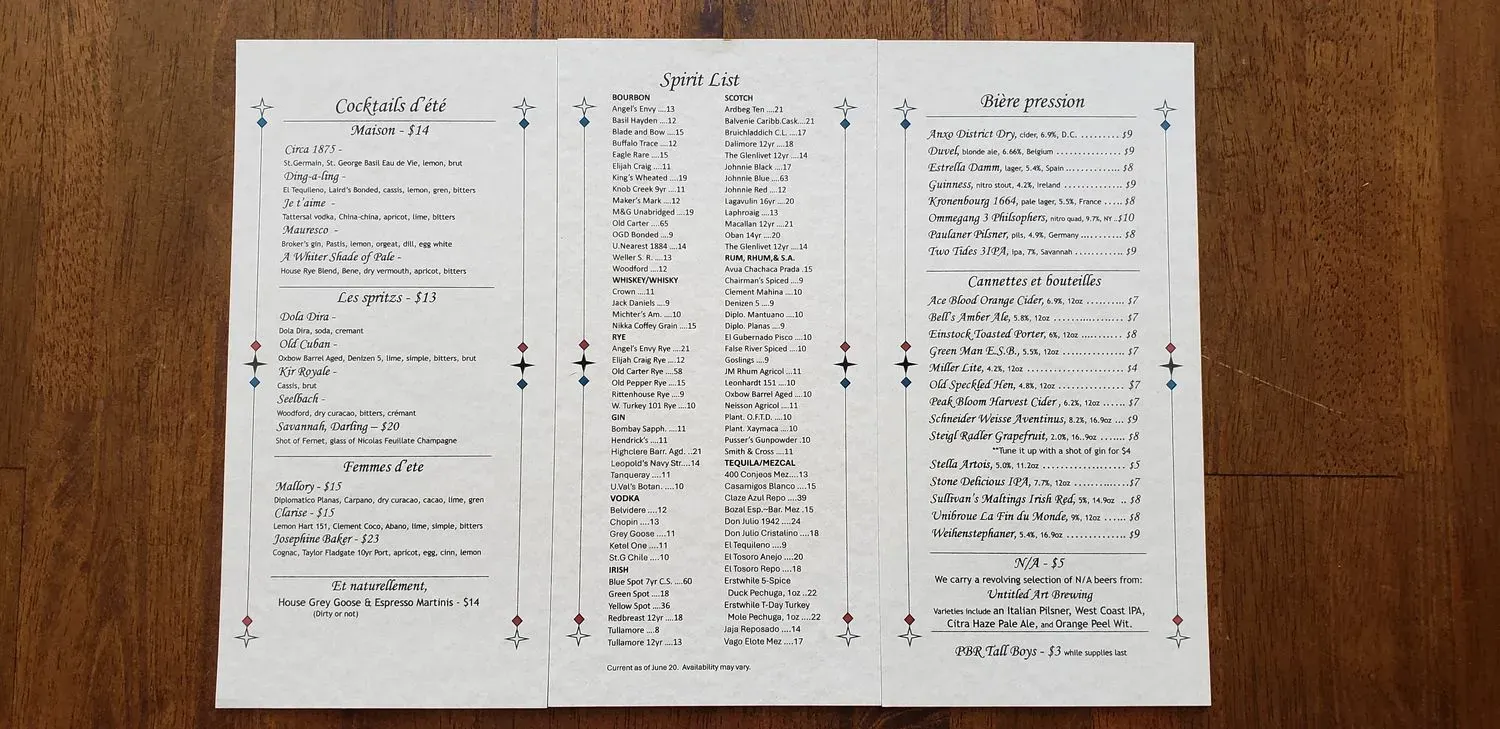 Cocktails d'été
Maison - $14
Circa 1875 -
St.Germain, St. George Basil Eau de Vie, lemon, brut
Ding-a-ling -
El Tequileno, Laird's Bonded, cassis, lemon, gren, bitters
Je t'aime -
Tattersal vodka, China-china, apricot, lime, bitters
Mauresco -
Broker's gin, Pastis, lemon, orgeat, dill, egg white
A Whiter Shade of Pale -
House Rye Blend, Bene, dry vermouth, apricot, bitters
Les spritzs - $13
Dola Dira -
Dola Dira, soda, cremant
Old Cuban -
Oxbow Barrel Aged, Denizen 5, lime, simple, bitters, brut
Kir Royale -
Cassis, brut
Seelbach -
Woodford, dry curacao, bitters, crémant
Savannah, Darling – $20
Shot of Fernet, glass of Nicolas Feuillate Champagne
Femmes d'ete
Mallory - $15
Diplomatico Planas, Carpano, dry curacao, cacao, lime, gren
Clarise - $15
Lemon Hart 151, Clement Coco, Abano, lime, simple, bitters
Josephine Baker - $23
Cognac, Taylor Fladgate 10yr Port, apricot, egg, cinn, lemon
Et naturellement,
House Grey Goose & Espresso Martinis - $14
(Dirty or not)
Spirit List
BOURBON
Angel's Envy ....13
Basil Hayden ....12
Blade and Bow ....15
Buffalo Trace ....12
Eagle Rare ....15
Elijah Craig ....11
King's Wheated ....19
Knob Creek 9yr ....11
Maker's Mark ....12
M&G Unabridged ....19
Old Carter ....65
OGD Bonded ....9
U.Nearest 1884 ....14
Weller S. R. ....13
Woodford ....12
WHISKEY/WHISKY
Crown ....11
Jack Daniels ....9
Michter's Am. ....10
Nikka Coffey Grain ....15
RYE
Angel's Envy Rye ....21
Elijah Craig Rye ....12
Old Carter Rye ....58
Old Pepper Rye ....15
Rittenhouse Rye ....9
W. Turkey 101 Rye ....10
GIN
Bombay Sapph. ....11
Hendrick's ....11
Highclere Barr. Agd. ..21
Leopold's Navy Str....14
Tanqueray ....11
U.Val's Botan. ....10
VODKA
Belvidere ....12
Chopin ....13
Grey Goose ....11
Ketel One ....11
St.G Chile ....10
IRISH
Blue Spot 7yr C.S. ....60
Green Spot ....18
Yellow Spot ....36
Redbreast 12yr ....18
Tullamore ....8
Tullamore 12yr ....13
SCOTCH
Ardbeg Ten ....21
Balvenie Caribb.Cask....21
Bruichladdich C.L. ....17
Dalimore 12yr ....18
The Glenlivet 12yr ....14
Johnnie Black ....17
Johnnie Blue ....63
Johnnie Red ....12
Lagavulin 16yr ....20
Laphroaig ....13
Macallan 12yr ....21
Oban 14yr ....20
The Glenlivet 12yr ....14
RUM, RHUM,& S.A.
Avua Chachaca Prada .15
Chairman's Spiced ....9
Clement Mahina ....10
Denizen 5 ....9
Diplo. Mantuano ....10
Diplo. Planas ....9
El Gubernado Pisco ....10
False River Spiced ....10
Goslings ....9
JM Rhum Agricol ...11
Leonhardt 151 ....10
Oxbow Barrel Aged ....10
Neisson Agricol ....11
Plant. O.F.T.D. ....10
Plant. Xaymaca ....10
Pusser's Gunpowder .10
Smith & Cross ....11
TEQUILA/MEZCAL
400 Conjeos Mez....13
Casamigos Blanco ....15
Claze Azul Repo ....39
Bozal Esp.~Bar. Mez .15
Don Julio 1942 ....24
Don Julio Cristalino ....18
El Tequileno ....9
El Tosoro Anejo ....20
El Tosoro Repo ....18
Erstwhile 5-Spice
Duck Pechuga, 1oz ..22
Erstwhile T-Day Turkey
Mole Pechuga, 1oz ....22
Jaja Reposado ....14
Vago Elote Mez ....17
Current as of June 20. Availability may vary.
Bière pression
Anxo District Dry, cider, 6.9%, D.C. ......... $9
Duvel, blonde ale, 6.66%, Belgium ............... $9
Estrella Damm, lager, 5.4%, Spain .............. $8
Guinness, nitro stout, 4.2%, Ireland ............. $9
Kronenbourg 1664, pale lager, 5.5%, France ..... $8
Ommegang 3 Philsophers, nitro quad, 9.7%, NY ..$10
Paulaner Pilsner, pils, 4.9%, Germany ........... $8
Two Tides 3IPA, ipa, 7%, Savannah ............. $9
Cannettes et bouteilles
Ace Blood Orange Cider, 6.9%, 12oz .......... $7
Bell's Amber Ale, 5.8%, 12oz ................. $7
Einstock Toasted Porter, 6%, 12oz ............ $8
Green Man E.S.B., 5.5%, 12oz ................ $7
Miller Lite, 4.2%, 12oz ...................... $4
Old Speckled Hen, 4.8%, 12oz ............... $7
Peak Bloom Harvest Cider , 6.2%, 12oz ...... $7
Schneider Weisse Aventinus, 8.2%, 16.9oz ... $9
Steigl Radler Grapefruit, 2.0%, 16..9oz ....... $8
**Tune it up with a shot of gin for $4
Stella Artois, 5.0%, 11.2oz ..................... $5
Stone Delicious IPA, 7.7%, 12oz ...............$7
Sullivan's Maltings Irish Red, 5%, 14.9oz .. $8
Unibroue La Fin du Monde, 9%, 12oz ....... $8
Weihenstephaner, 5.4%, 16.9oz ................ $9
N/A - $5
We carry a revolving selection of N/A beers from:
Untitled Art Brewing
Varieties include an Italian Pilsner, West Coast IPA,
Citra Haze Pale Ale, and Orange Peel Wit.
PBR Tall Boys - $3 while supplies last